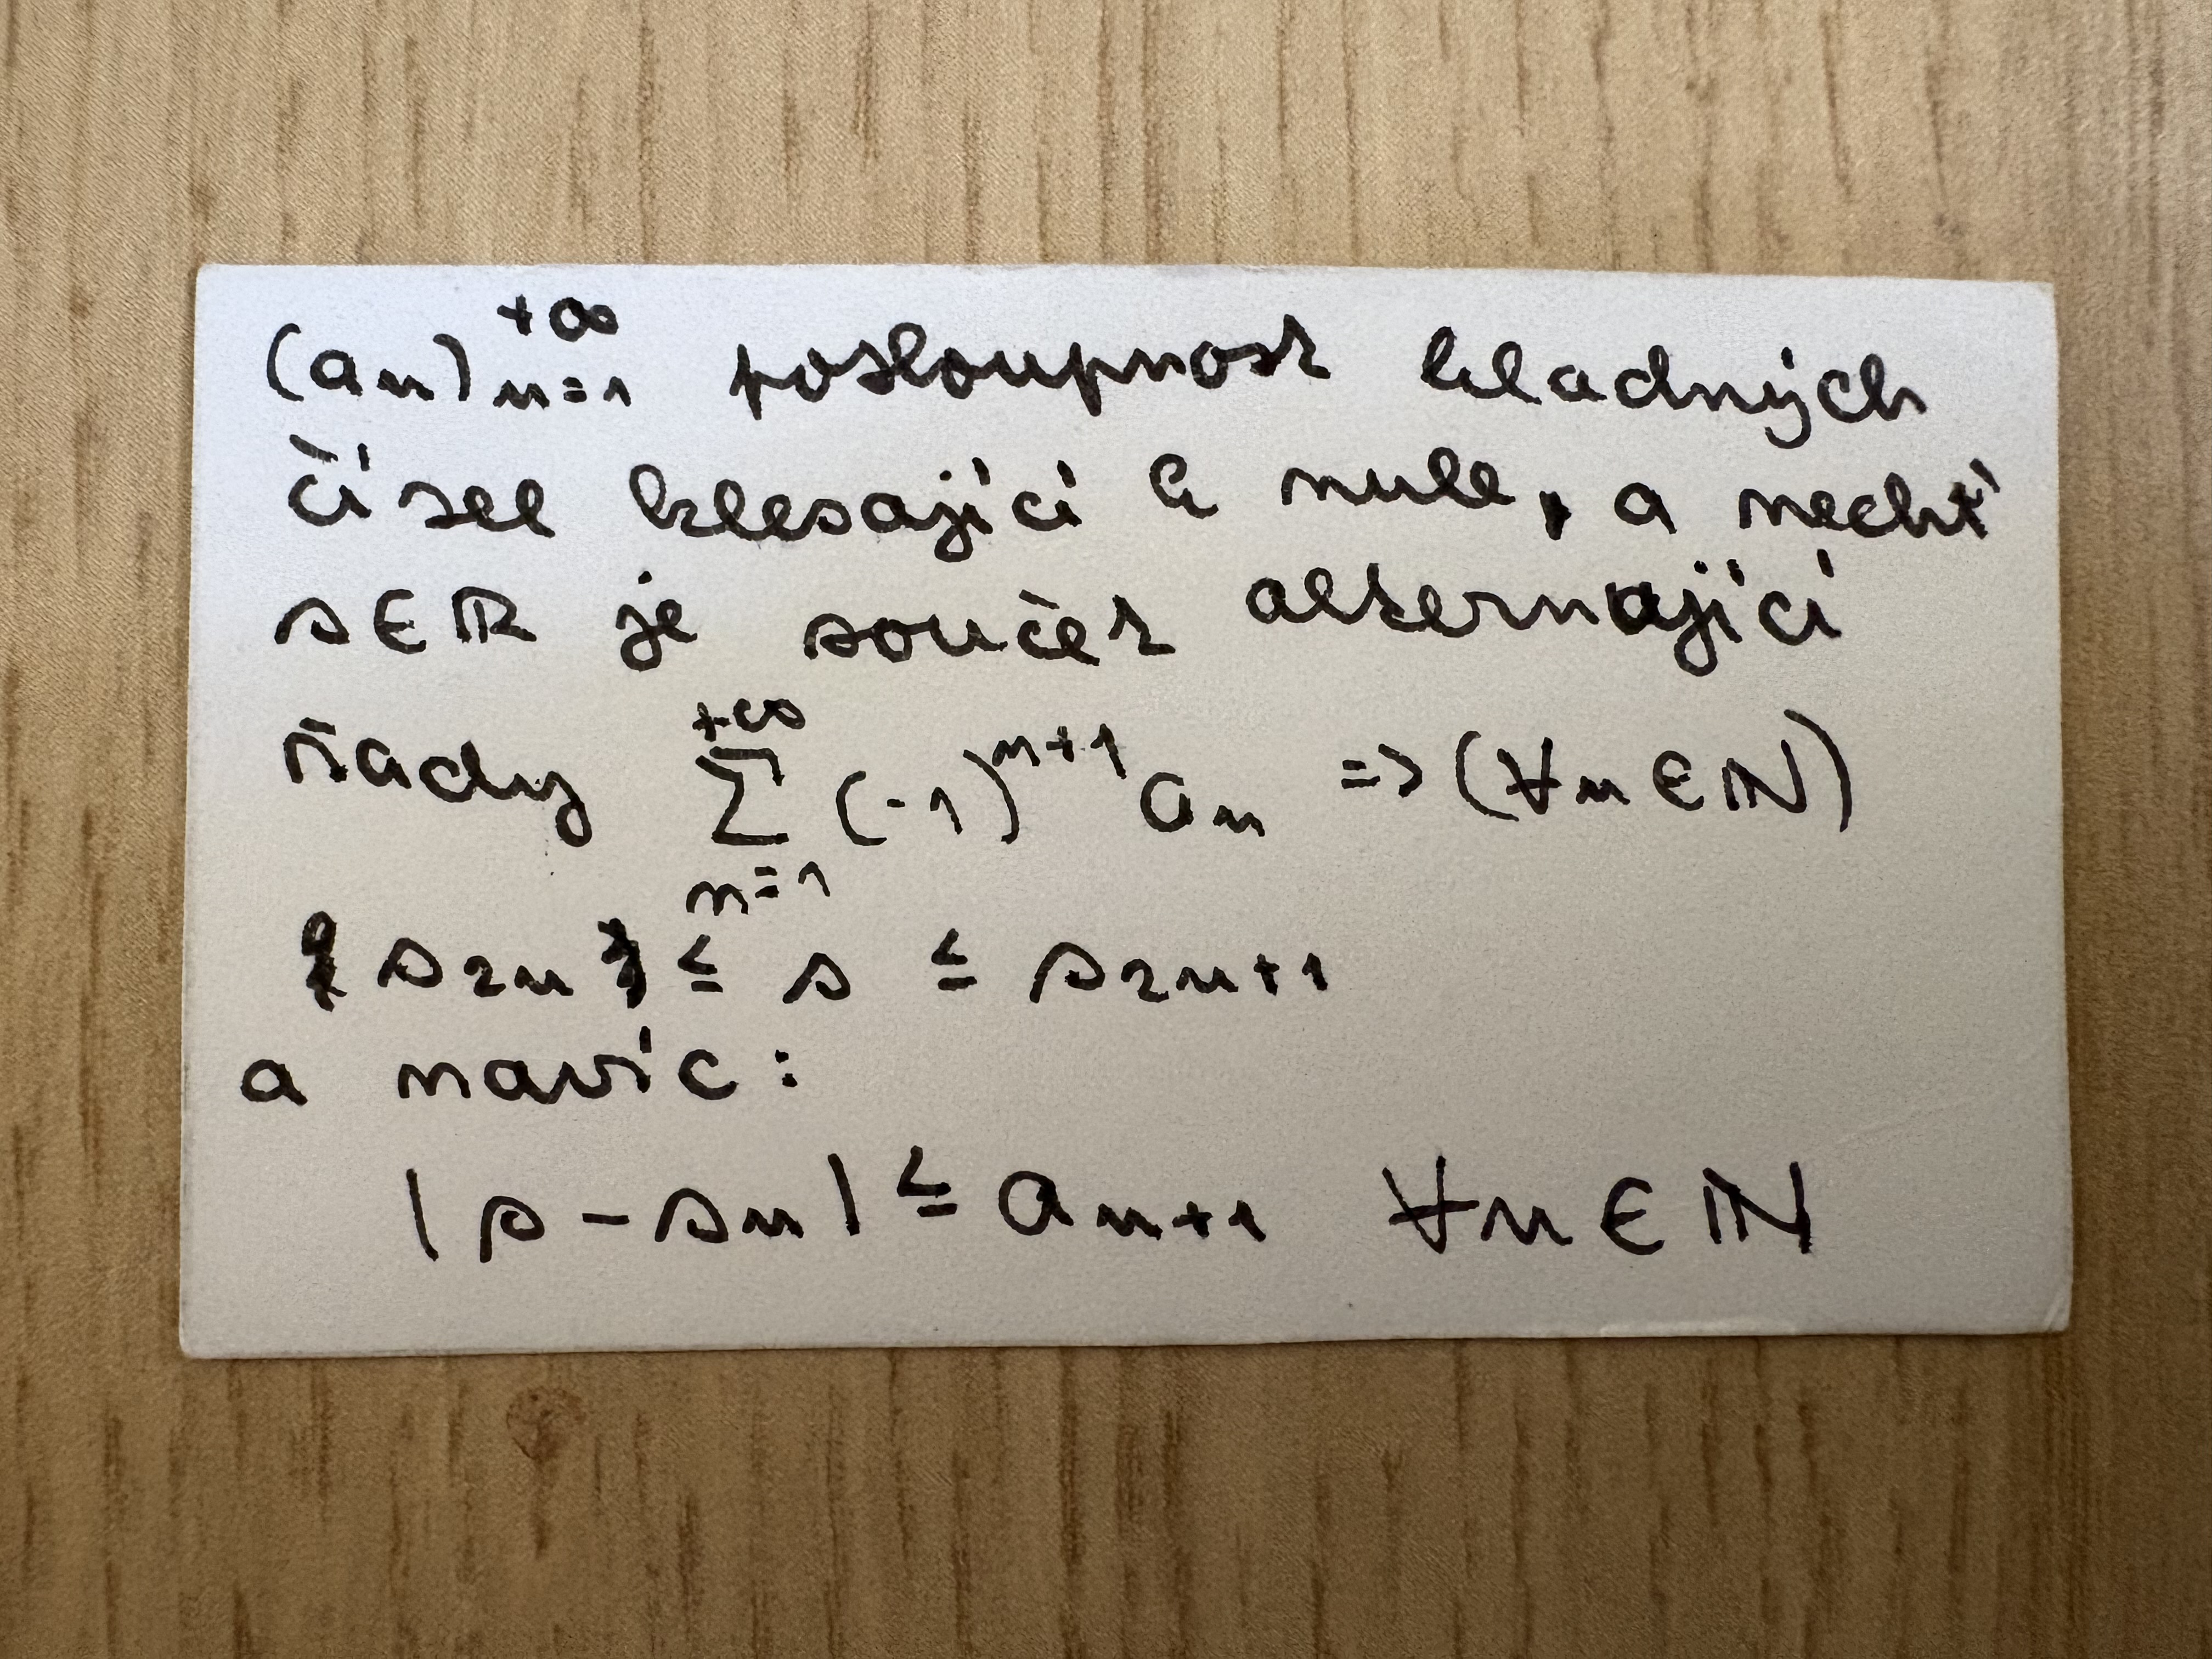 (aₙ)ₙ₌₁⁺∞ posloupnost kladných
čísel klesající k nule, a nechť
s∈ℝ je součet alternající
řady ∑ₙ₌₁⁺∞ (-1)ⁿ⁺¹ aₙ => (∀n∈ℕ)
s₂ₙ ≤ s ≤ s₂ₙ₊₁
a navíc:
|s - sₙ| ≤ aₙ₊₁ ∀n∈ℕ